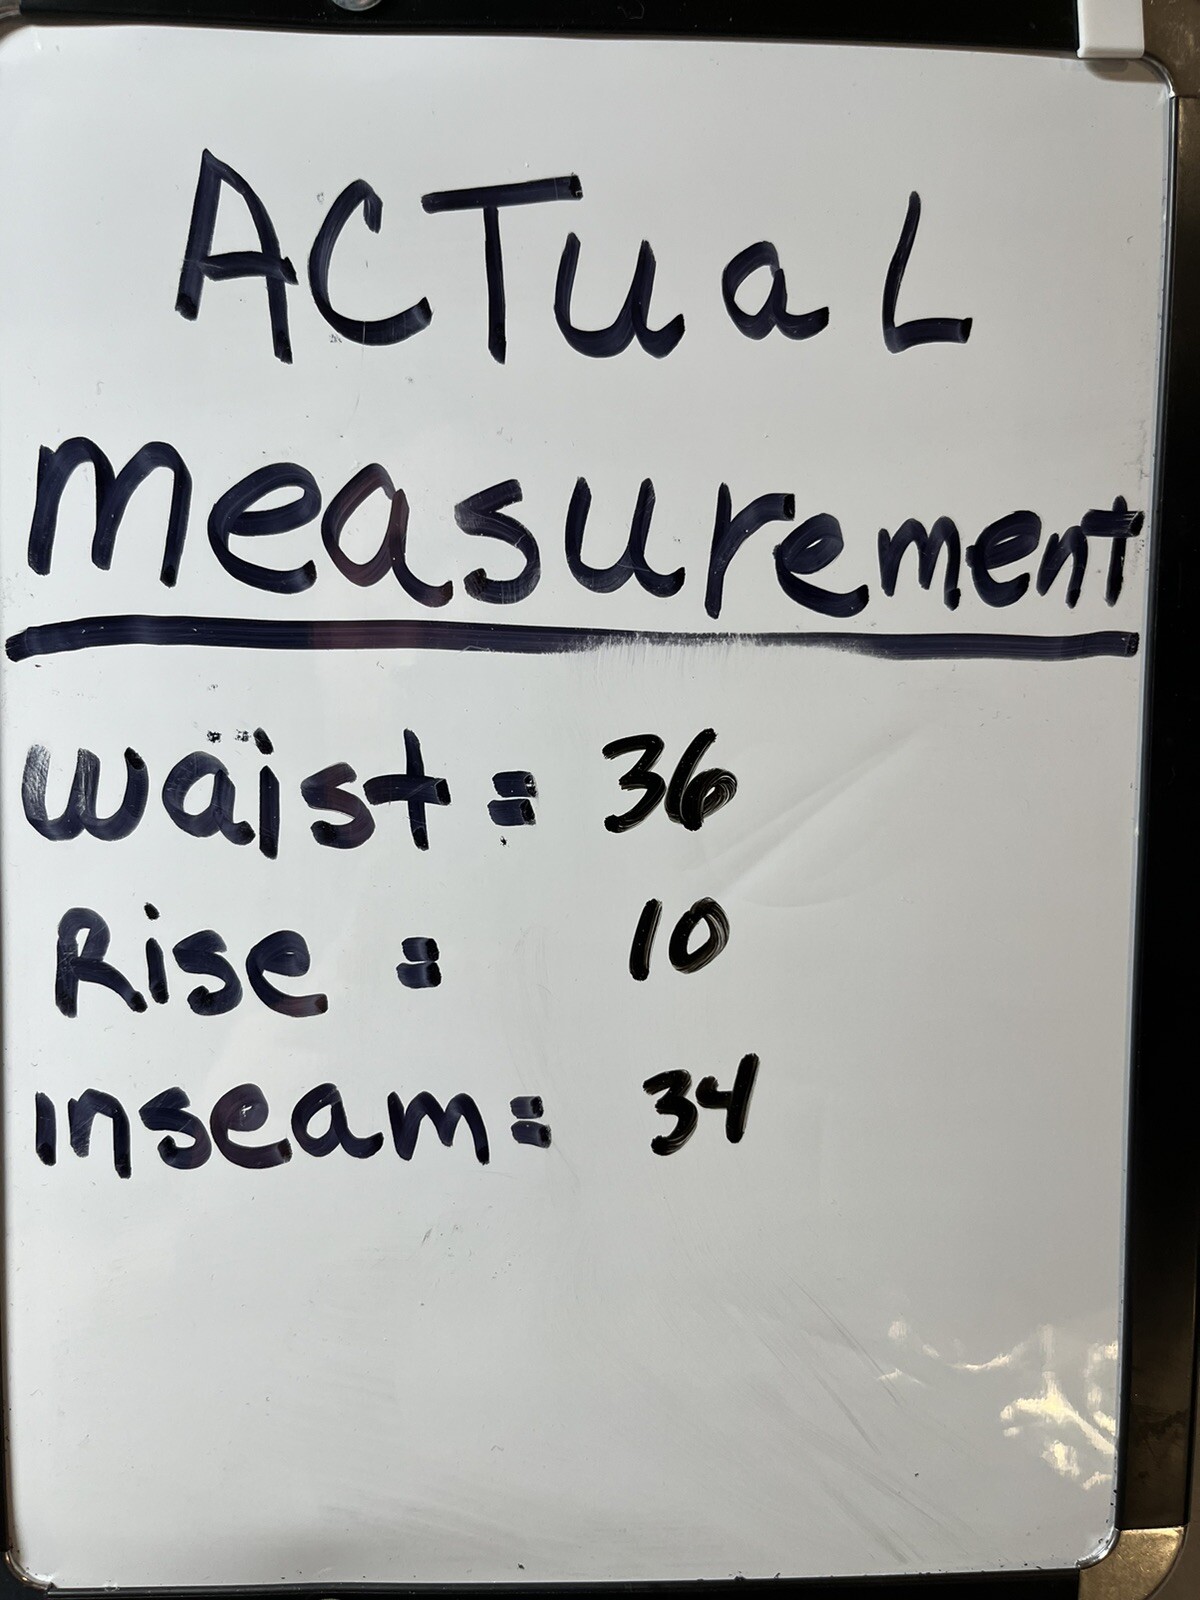 ACTuaL
measurement
waist = 36
Rise = 10
inseam = 34